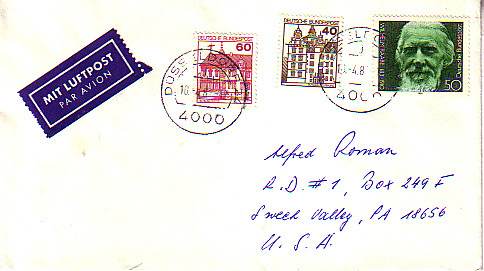 MIT LUFTPOST
PAR AVION
60
DEUTSCHE BUNDESPOST
40
DEUTSCHE BUNDESPOST
50
Deutsche Bundespost
DÜSSELDORF
4000
Alfred Roman
R.D. #1, Box 249F
Sweet Valley, PA 18656
U.S.A.